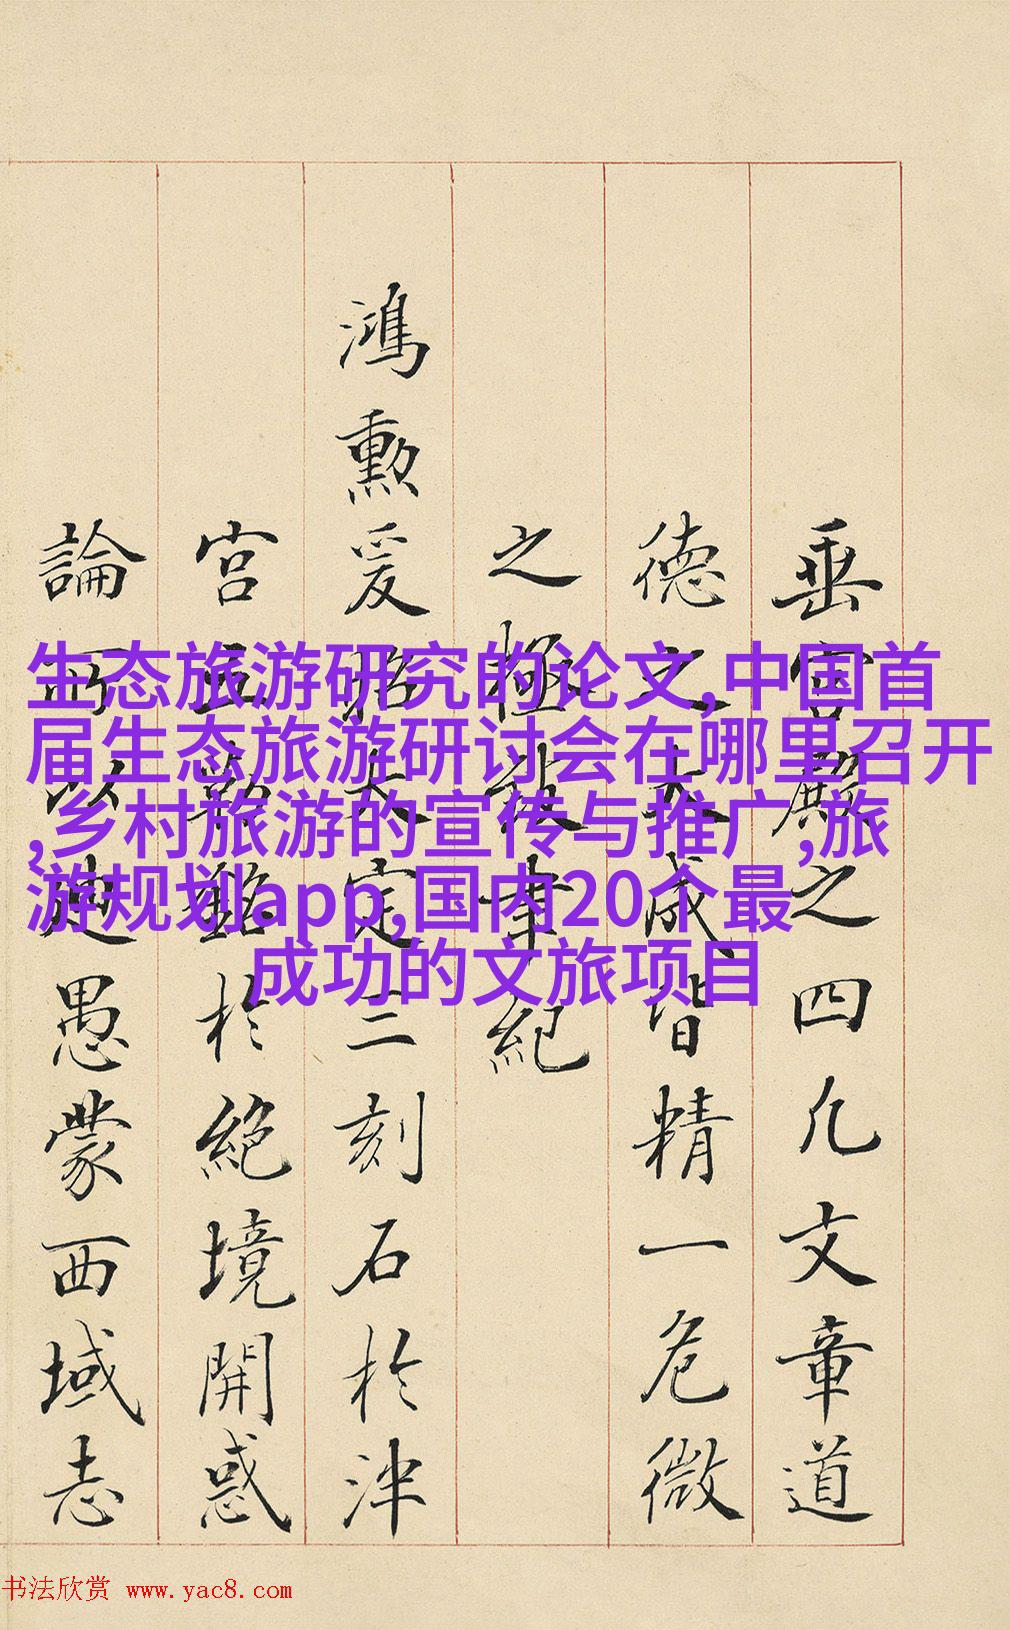 生态旅游研究的论文,中国首
届生态旅游研讨会在哪里召开
,乡村旅游的宣传与推广,旅
游规划app,国内20个最
成功的文旅项目
垂宮殿之四几文章道
德之大成皆精一危微
之極致聿紀
鴻勲爰大定三刻石於津
宫五勒銘於絶境開惑
論以愚蒙西域志
书法欣赏 www.yac8.com